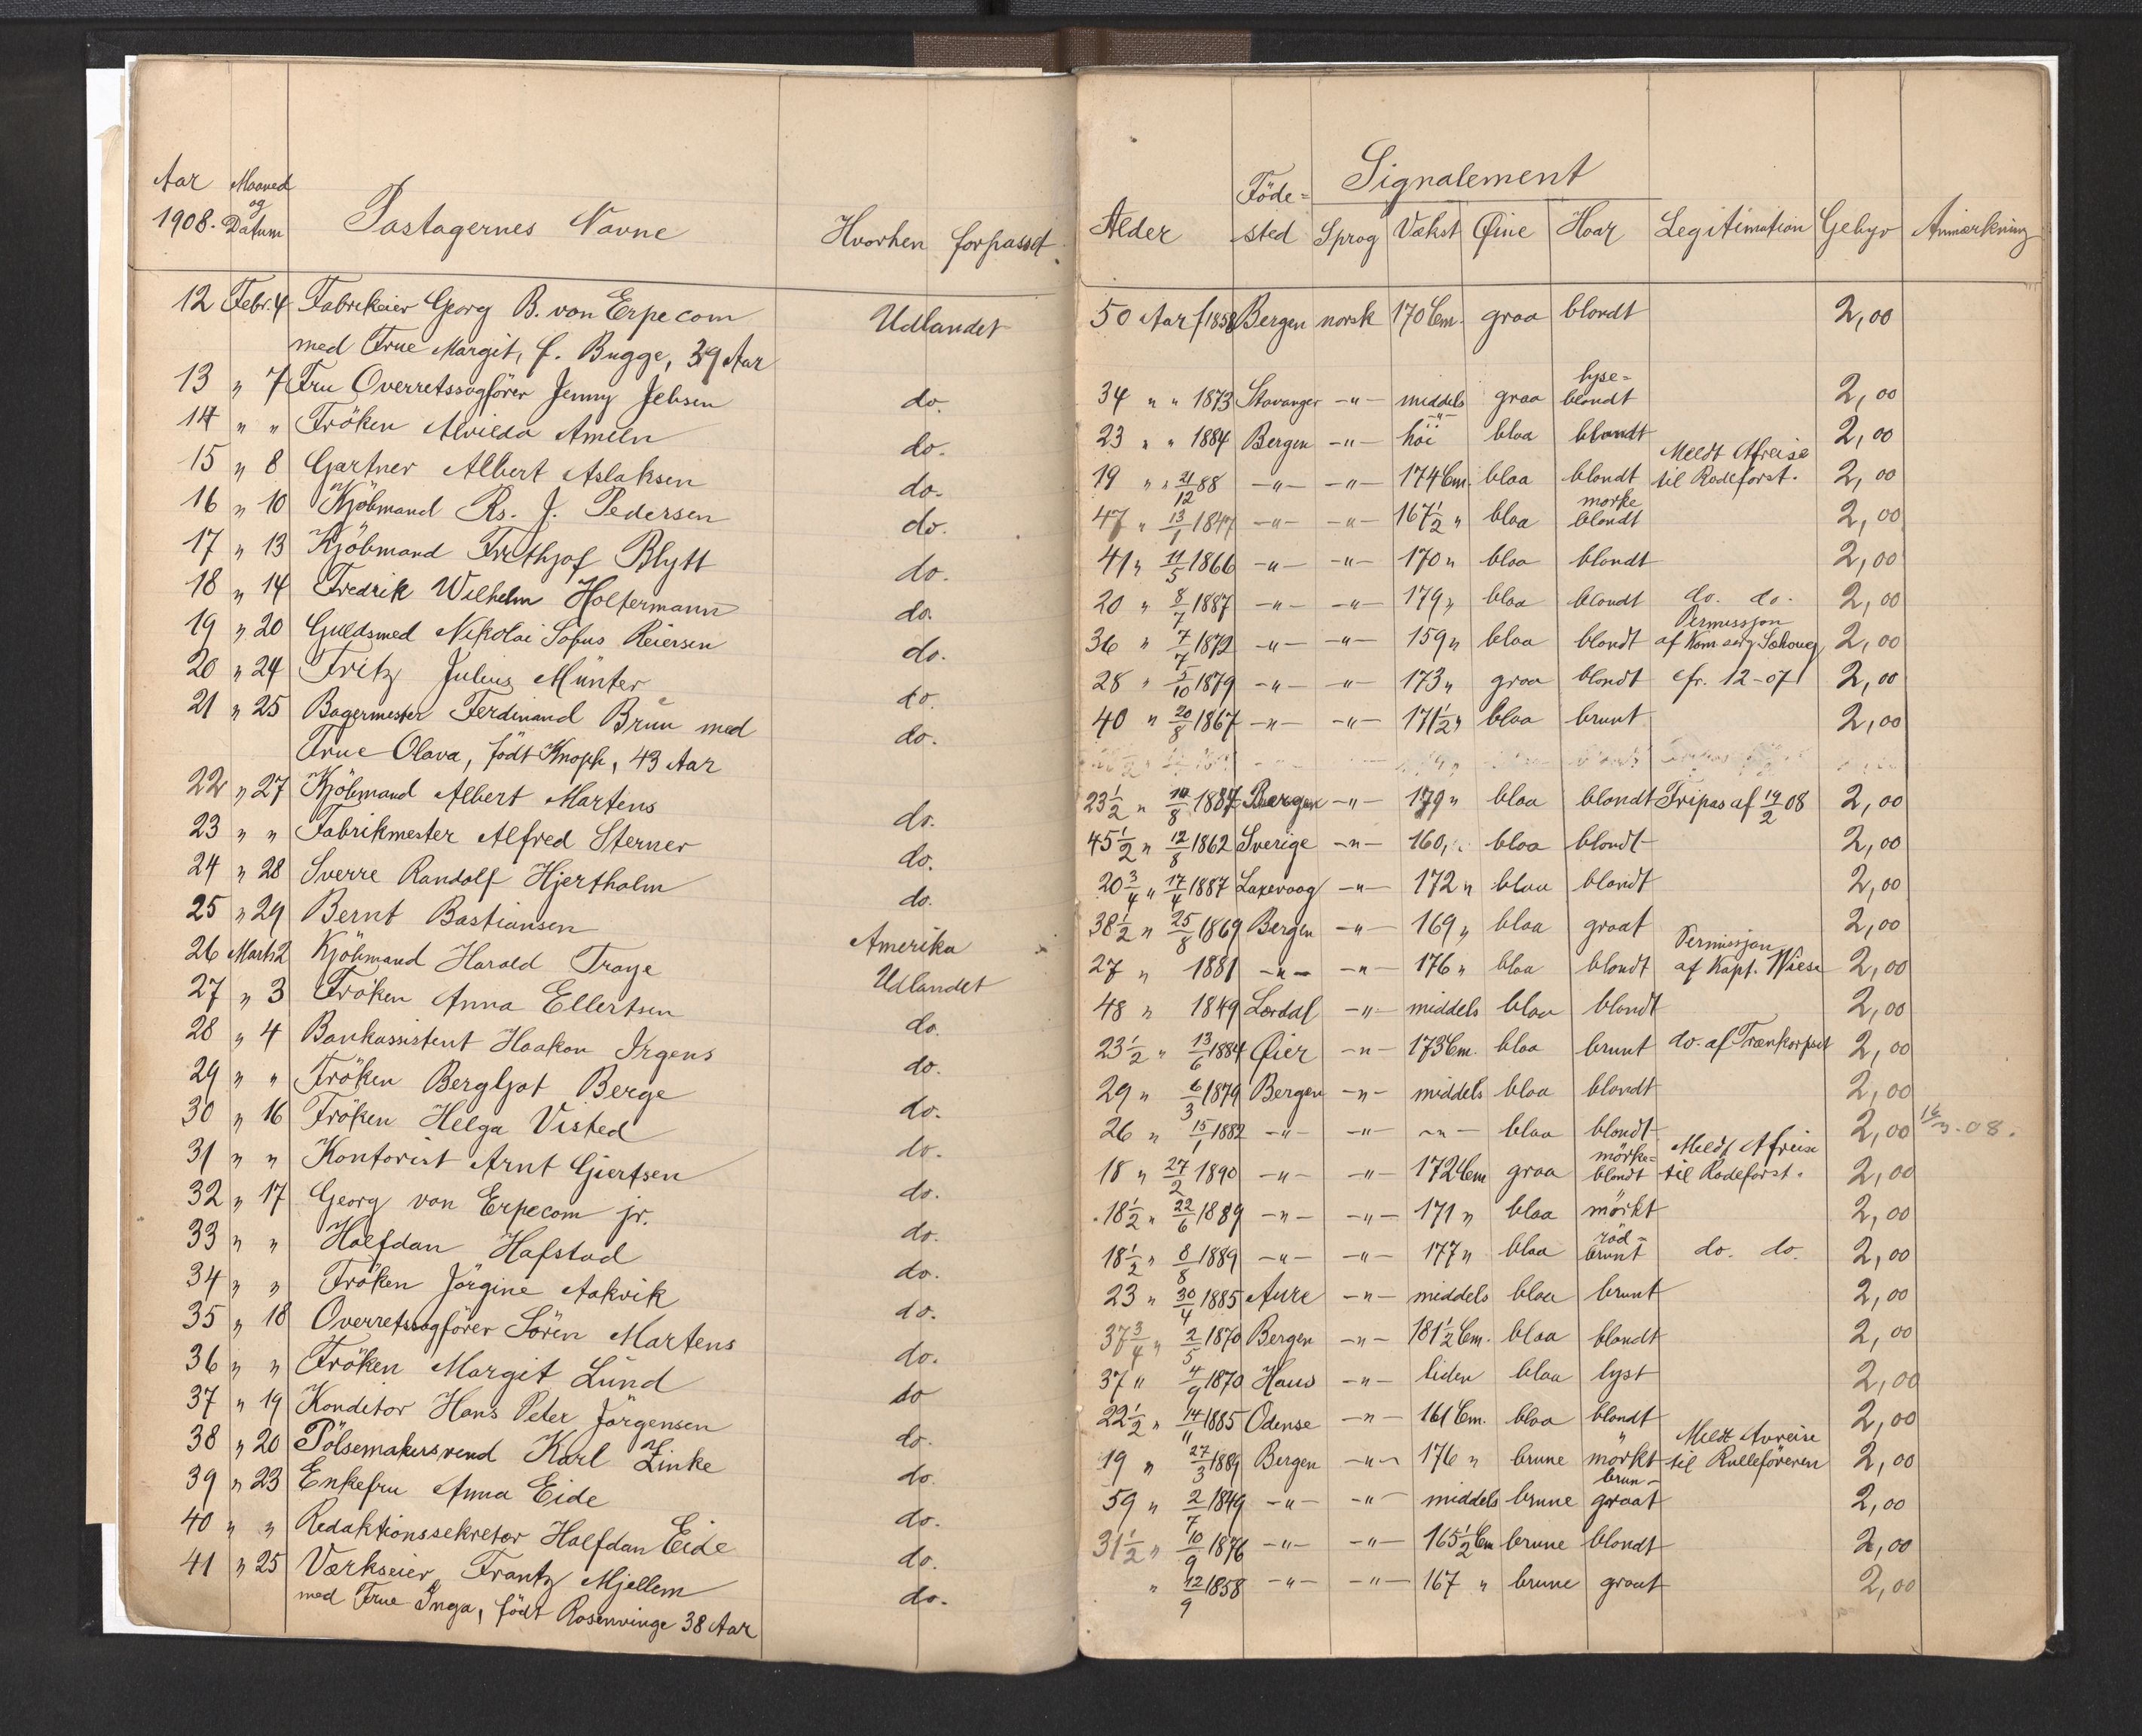 Aar Maaned og Datum Passagernes Navne Hvorhen forpasset
1908.
12 Febr. 4 Fabrikeier Georg B. von Erpecom Udlandet
med Frue Margit, f. Bugge, 39 Aar
13 " 7 Fru Overretssagfører Jenny Jebsen do.
14 " " Fröken Alvilda Ameln do.
15 " 8 Gartner Albert Aslaksen do.
16 " 10 Kjöbmand Rs. J. Pedersen do.
17 " 13 Kjöbmand Frithjof Blytt do.
18 " 14 Fredrik Wilhelm Holtermann do.
19 " 20 Guldsmed Nikolai Sofus Reiersen do.
20 " 24 Fritz Julius Münter do.
21 " 25 Bagermester Ferdinand Brun med do.
Frue Olava, födt Knoph, 43 Aar
22 " 27 Kjöbmand Albert Martens do.
23 " " Fabrikmester Alfred Sterner do.
24 " 28 Sverre Randolf Hjertholm do.
25 " 29 Bernt Bastiansen Amerika
26 Marts 2 Kjöbmand Harald Traye Udlandet
27 " 3 Fröken Anna Ellertsen do.
28 " 4 Bankassistent Haakon Irgens do.
29 " " Fröken Bergljot Berge do.
30 " 16 Fröken Helga Visted do.
31 " " Kontorist Arnt Giertsen do.
32 " 17 Georg von Erpecom jr. do.
33 " " Halfdan Hafstad do.
34 " " Fröken Jörgine Aakvik do.
35 " 18 Overretssagfører Sören Martens do.
36 " " Fröken Margit Lund do
37 " 19 Konditor Hans Peter Jörgensen do.
38 " 20 Pölsemakersvend Karl Linke do.
39 " 23 Enkefru Anna Eide do.
40 " " Redaktionssekretær Halfdan Eide do.
41 " 25 Værkseier Frantz Mjellem do.
med Frue Inga, födt Rosenvinge 38 Aar
Signalement
Alder Föde=sted Sprog Vækst Øine Haar Legitimation Gebyr Anmærkning
50 Aar f 1858 Bergen norsk 170 Cm. graa blondt 2,00
34 " " 1873 Stavanger -"- middels graa lyse=blondt 2,00
23 " " 1884 Bergen -"- höi bloa blondt 2,00
19 " " 21/12 88 -"- -"- 174 Cm. bloa blondt Meldt Afreise til Rodeforst. 2,00
47 " 13/1 1847 -"- -"- 167 1/2 " bloa mørke blondt 2,00
41 " 11/5 1866 -"- -"- 170 " bloa blondt 2,00
20 " 8/7 1887 -"- -"- 179 " bloa blondt do. do. 2,00
36 " 7/7 1872 -"- -"- 159 " bloa blondt Permissjon af Kom 2,00
28 " 5/10 1879 -"- -"- 173 " graa blondt cfr. 12-07 2,00
40 " 20/8 1867 -"- -"- 171 1/2 " bloa brunt 2,00
23 1/2 " 14/8 1887 Bergen -"- 179 " bloa blondt Fripas af 19/2 08 2,00
45 1/2 " 12/8 1862 Sverige -"- 160 " bloa blondt 2,00
20 3/4 " 17/4 1887 Laxevaag -"- 172 " bloa blondt 2,00
38 1/2 " 25/8 1869 Bergen -"- 169 " bloa graat 2,00
27 " 1881 -"- -"- 176 " bloa blondt Permissjon af Kapt. Wiese 2,00
48 " 1849 Lærdal -"- middels bloa blondt 2,00
23 1/2 " 13/6 1884 Øier -"- 173 Cm. bloa brunt do. af Trænkorpset 2,00
29 " 6/3 1879 Bergen -"- middels bloa blondt 2,00
26 " 15/1 1882 -"- -"- -"- bloa blondt 2,00 16/3-08.
18 " 27/2 1890 -"- -"- 172 Cm graa mörke=blondt Meldt Afreise til Rodeforst. 2,00
18 1/2 " 22/6 1889 -"- -"- 171 " bloa mörkt 2,00
18 1/2 " 8/8 1889 -"- -"- 177 " bloa röd=brunt do. do. 2,00
23 " 30/4 1885 Aure -"- middels bloa brunt 2,00
37 3/4 " 2/5 1870 Bergen -"- 181 1/2 Cm. bloa blondt 2,00
37 " 4/9 1870 Haus -"- liden bloa lyst 2,00
22 1/2 " 14/11 1885 Odense -"- 161 Cm. bloa blondt 2,00
19 " 27/3 1889 Bergen -"- 176 " brune mörkt Meldt Avreise til Rulleföreren 2,00
59 " 2/7 1849 -"- -"- middels brune brun-graat 2,00
31 1/2 " 10/9 1876 -"- -"- 165 1/2 Cm brune blondt 2,00
" 12/9 1858 -"- -"- 167 " brune graat 2,00